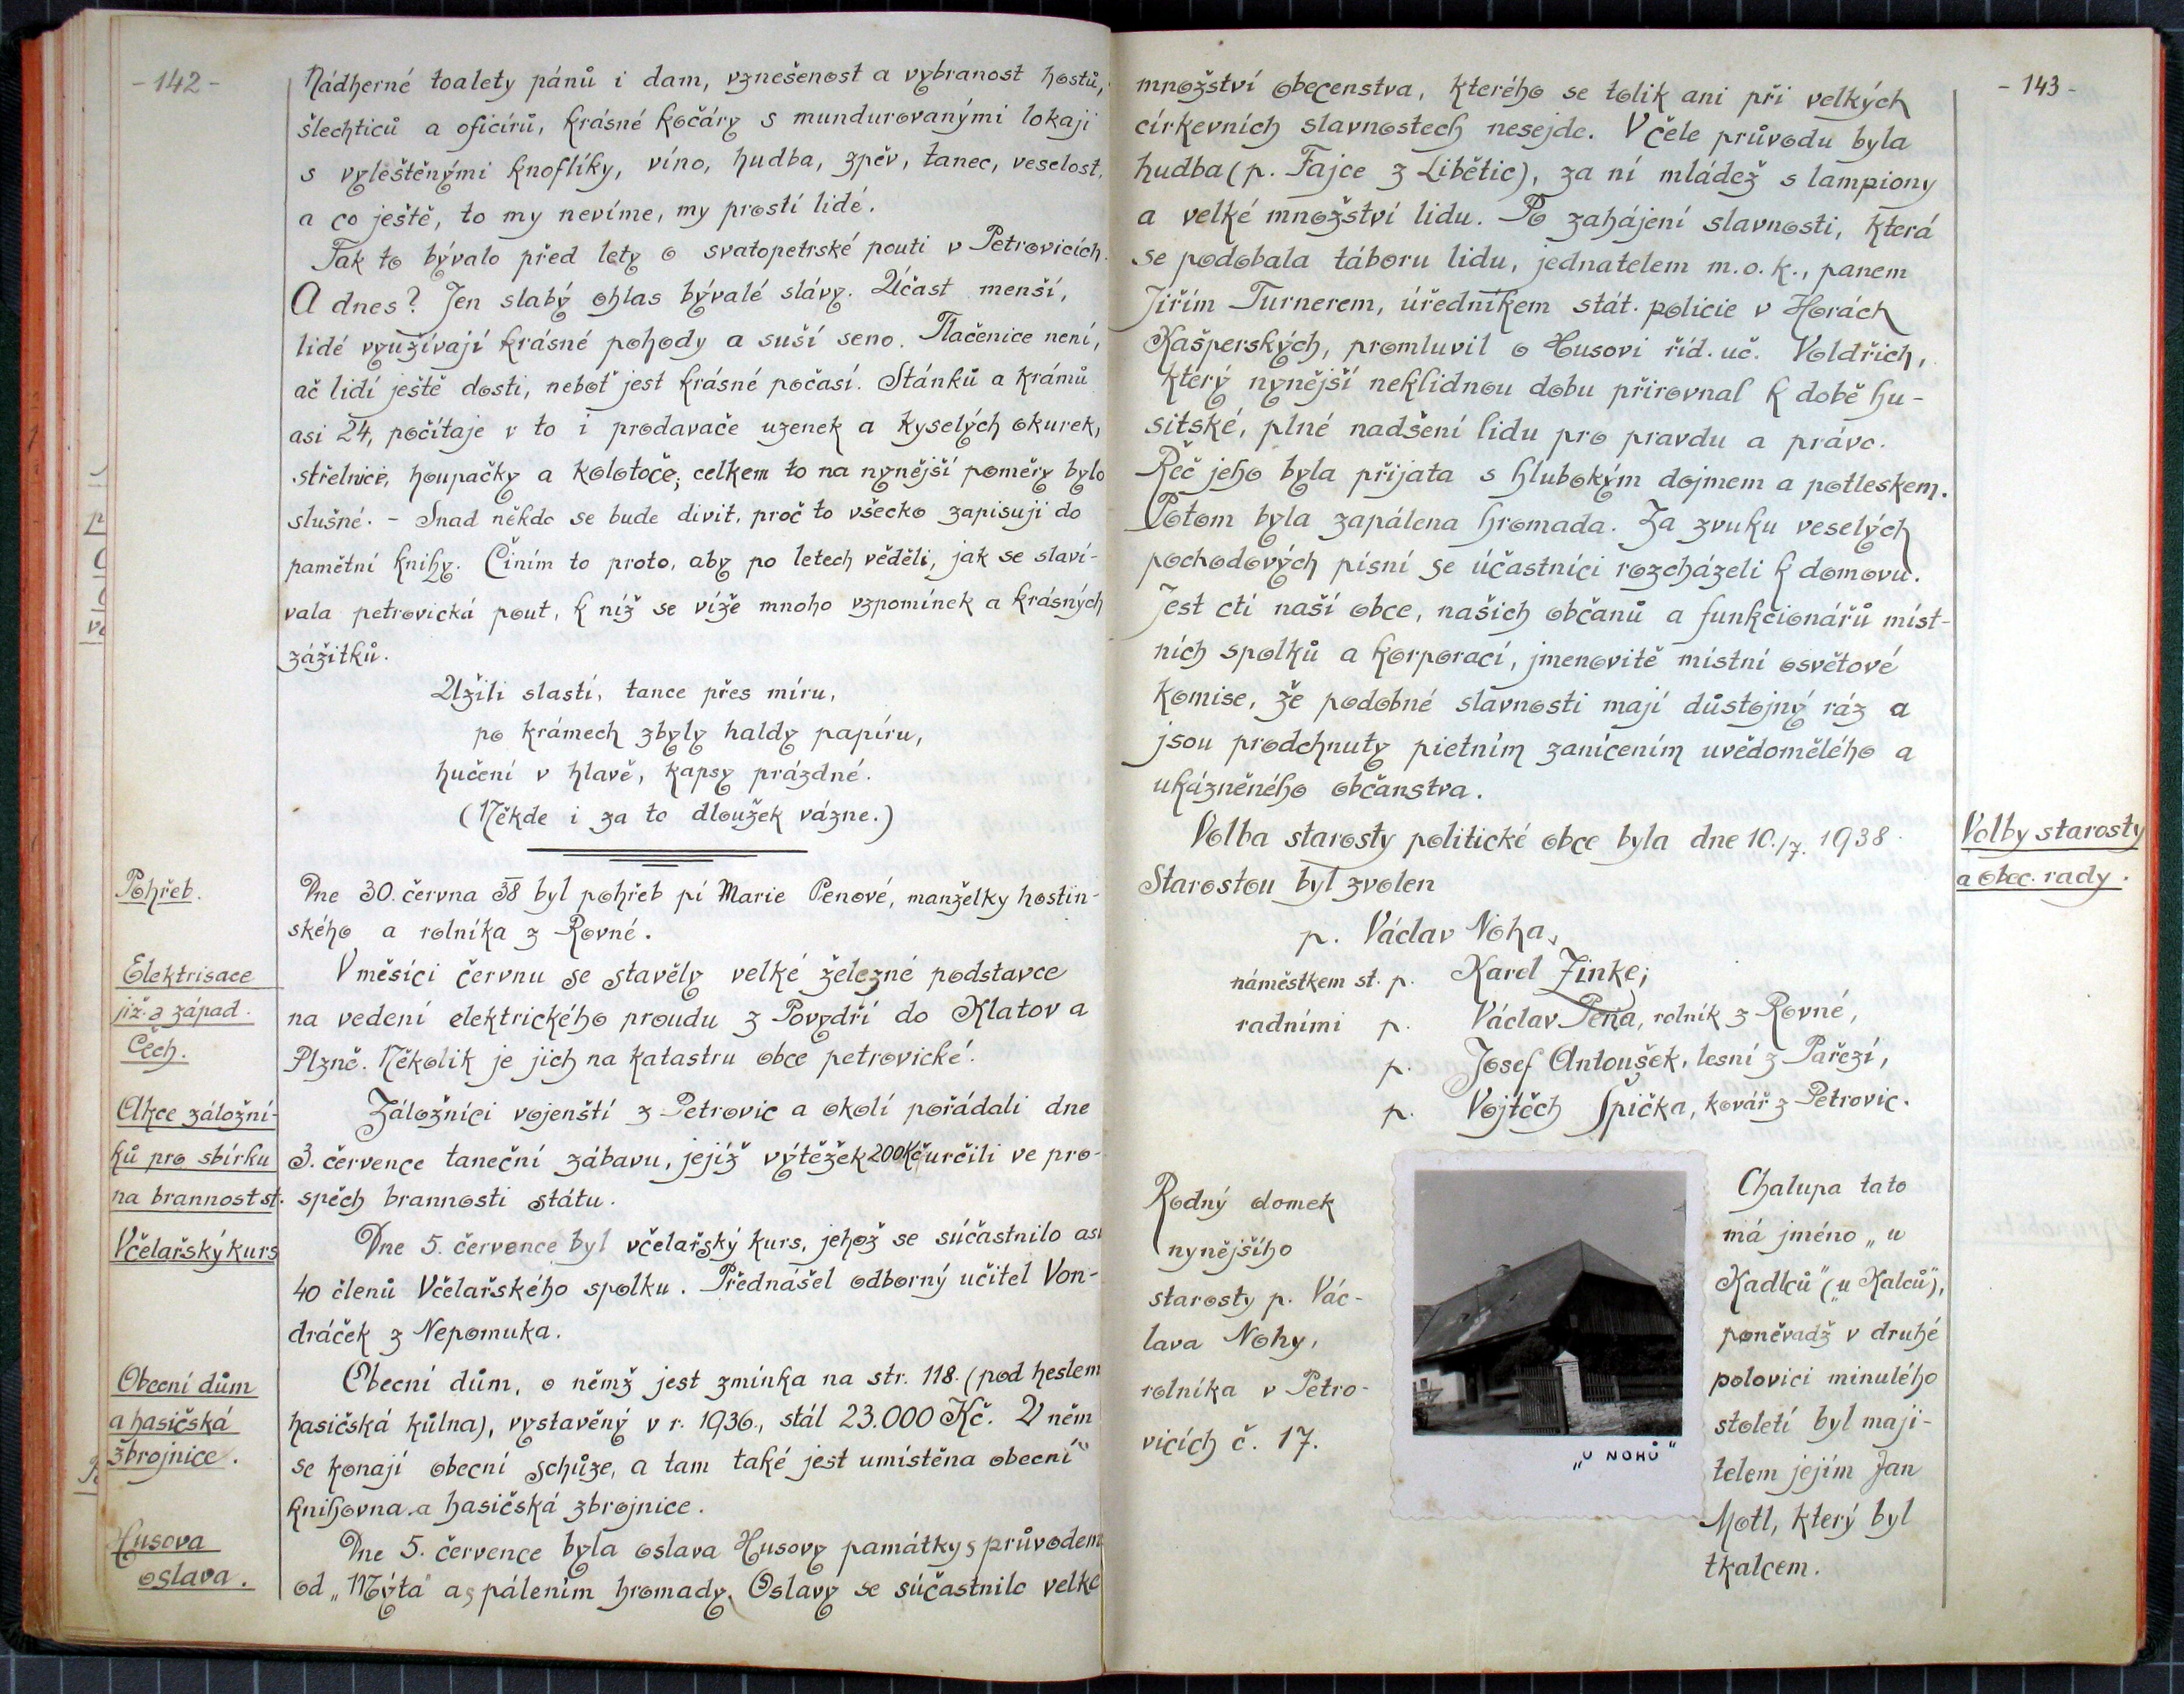 - 142 -
Nádherné toalety pánů i dam, vznešenost a vybranost hostů,
šlechticů a oficírů, krásné kočáry s mundurovanými lokaji
s vyleštěnými knoflíky, víno, hudba, zpěv, tanec, veselost,
a co ještě, to my nevíme, my prostí lidé.
Tak to bývalo před lety o svatopetrské pouti v Petrovicích.
A dnes? Jen slabý ohlas bývalé slávy. Účast menší,
lidé využívají krásné pohody a suší seno. Tlačenice není,
ač lidí ještě dosti, neboť jest krásné počasí. Stánků a krámů
asi 24, počítaje v to i prodavače uzenek a kyselých okurek,
střelnice, houpačky a kolotoče; celkem to na nynější poměry bylo
slušné. - Snad někdo se bude divit, proč to všecko zapisuji do
pamětní knihy. Činím to proto, aby po letech věděli, jak se slaví-
vala petrovická pout, k níž se víže mnoho vzpomínek a krásných
zážitků.
Užili slastí, tance přes míru,
po krámech zbyly haldy papíru,
hučení v hlavě, kapsy prázdné.
(Někde i za to dloužek vázne.)
Pohřeb.
Dne 30. června 38 byl pohřeb pí Marie Penové, manželky hostin-
ského a rolníka z Rovné.
Elektrisace
již. a západ.
Čech.
V měsíci červnu se stavěly velké železné podstavce
na vedení elektrického proudu z Povydří do Klatov a
Plzně. Několik je jich na katastru obce petrovické.
Akce záložní-
ků pro sbírku
na brannost st.
Záložníci vojenští z Petrovic a okolí pořádali dne
3. července taneční zábavu, jejíž výtěžek 200Kč určili ve pro-
spěch brannosti státu.
Včelařský kurs
Dne 5. července byl včelařský kurs, jehož se súčastnilo asi
40 členů Včelařského spolku. Přednášel odborný učitel Von-
dráček z Nepomuka.
Obecní dům
a hasičská
zbrojnice.
Obecní dům, o němž jest zmínka na str. 118. (pod heslem
hasičská kůlna), vystavěný v r. 1936., stál 23.000 Kč. V něm
se konají obecní schůze, a tam také jest umístěna obecní
knihovna a hasičská zbrojnice.
Husova
oslava.
Dne 5. července byla oslava Husovy památky s průvodem
od „Mýta" a s pálením hromady. Oslavy se súčastnilo velké
- 143 -
množství obecenstva, kterého se tolik ani při velkých
církevních slavnostech nesejde. V čele průvodu byla
hudba (p. Fajce z Libětic), za ní mládež s lampiony
a velké množství lidu. Po zahájení slavnosti, která
se podobala táboru lidu, jednatelem m.o.k., panem
Jiřím Turnerem, úředníkem stát. policie v Horách
Kašperských, promluvil o Husovi říd. uč. Voldřich,
který nynější neklidnou dobu přirovnal k době hu-
sitské, plné nadšení lidu pro pravdu a právo.
Řeč jeho byla přijata s hlubokým dojmem a potleskem.
Potom byla zapálena hromada. Za zvuku veselých
pochodových písní se účastníci rozcházeli k domovu.
Jest ctí naší obce, našich občanů a funkcionářů míst-
ních spolků a korporací, jmenovitě místní osvětové
komise, že podobné slavnosti mají důstojný ráz a
jsou prodchnuty pietním zanícením uvědomělého a
ukázněného občanstva.
Volby starosty
a obec. rady.
Volba starosty politické obce byla dne 10./7. 1938.
Starostou byl zvolen
p. Václav Noha,
náměstkem st. p. Karel Jinke;
radními p. Václav Peňa, rolník z Rovné,
p. Josef Antoušek, lesní z Pařezí,
p. Vojtěch Špička, kovář z Petrovic.
Rodný domek
nynějšího
starosty p. Vác-
lava Nohy,
rolníka v Petro-
vicích č. 17.
„U NOHŮ"
Chalupa tato
má jméno „u
Kadlců" („u Kalců"),
poněvadž v druhé
polovici minulého
století byl maji-
telem jejím Jan
Motl, který byl
tkalcem.